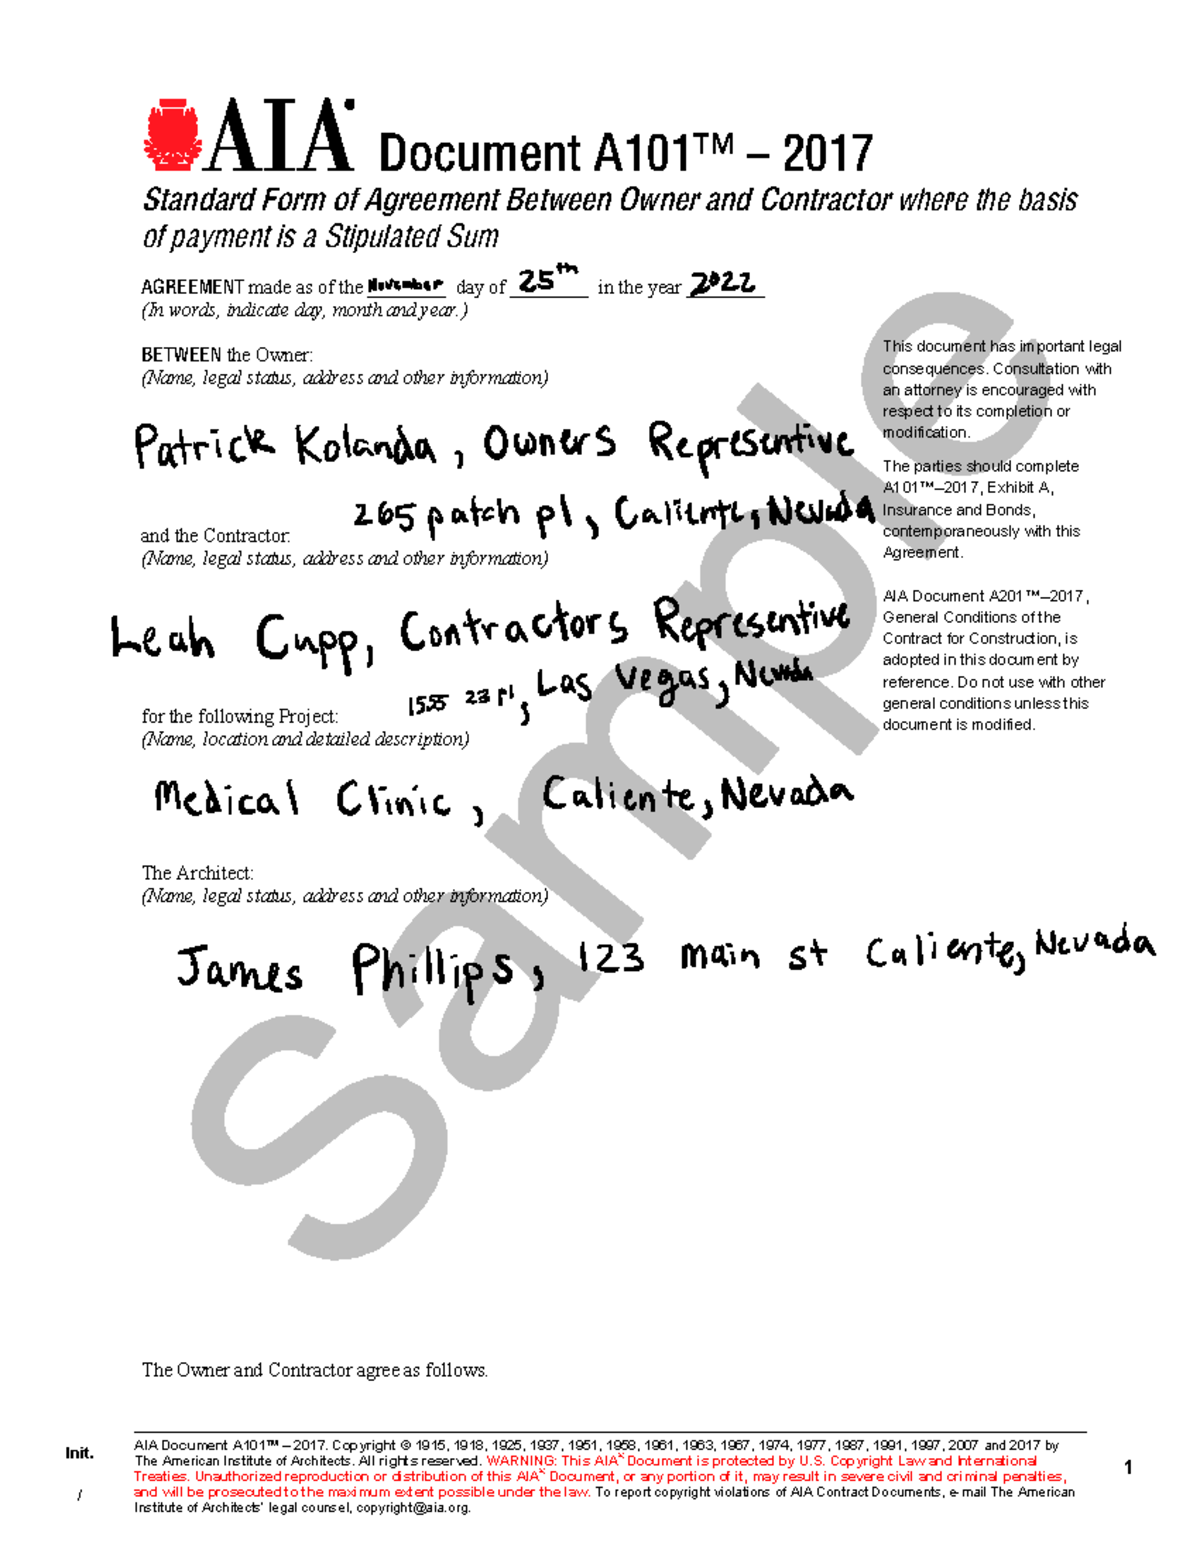 AIA® Document A101™ – 2017
Standard Form of Agreement Between Owner and Contractor where the basis
of payment is a Stipulated Sum
AGREEMENT made as of the November day of 25th in the year 2022
(In words, indicate day, month and year.)
BETWEEN the Owner:
(Name, legal status, address and other information)
Patrick Kolanda, Owners Representive
265 patch pl, Caliente, Nevada
and the Contractor:
(Name, legal status, address and other information)
Leah Cupp, Contractors Representive
1555 23 pl, Las Vegas, Nevada
for the following Project:
(Name, location and detailed description)
Medical Clinic, Caliente, Nevada
The Architect:
(Name, legal status, address and other information)
James Phillips, 123 main st Caliente, Nevada
This document has important legal
consequences. Consultation with
an attorney is encouraged with
respect to its completion or
modification.
The parties should complete
A101™–2017, Exhibit A,
Insurance and Bonds,
contemporaneously with this
Agreement.
AIA Document A201™–2017,
General Conditions of the
Contract for Construction, is
adopted in this document by
reference. Do not use with other
general conditions unless this
document is modified.
Sample
The Owner and Contractor agree as follows.
Init.
/
AIA Document A101™ – 2017. Copyright © 1915, 1918, 1925, 1937, 1951, 1958, 1961, 1963, 1967, 1974, 1977, 1987, 1991, 1997, 2007 and 2017 by
The American Institute of Architects. All rights reserved. WARNING: This AIA® Document is protected by U.S. Copyright Law and International
Treaties. Unauthorized reproduction or distribution of this AIA® Document, or any portion of it, may result in severe civil and criminal penalties,
and will be prosecuted to the maximum extent possible under the law. To report copyright violations of AIA Contract Documents, e-mail The American
Institute of Architects' legal counsel, copyright@aia.org.
1